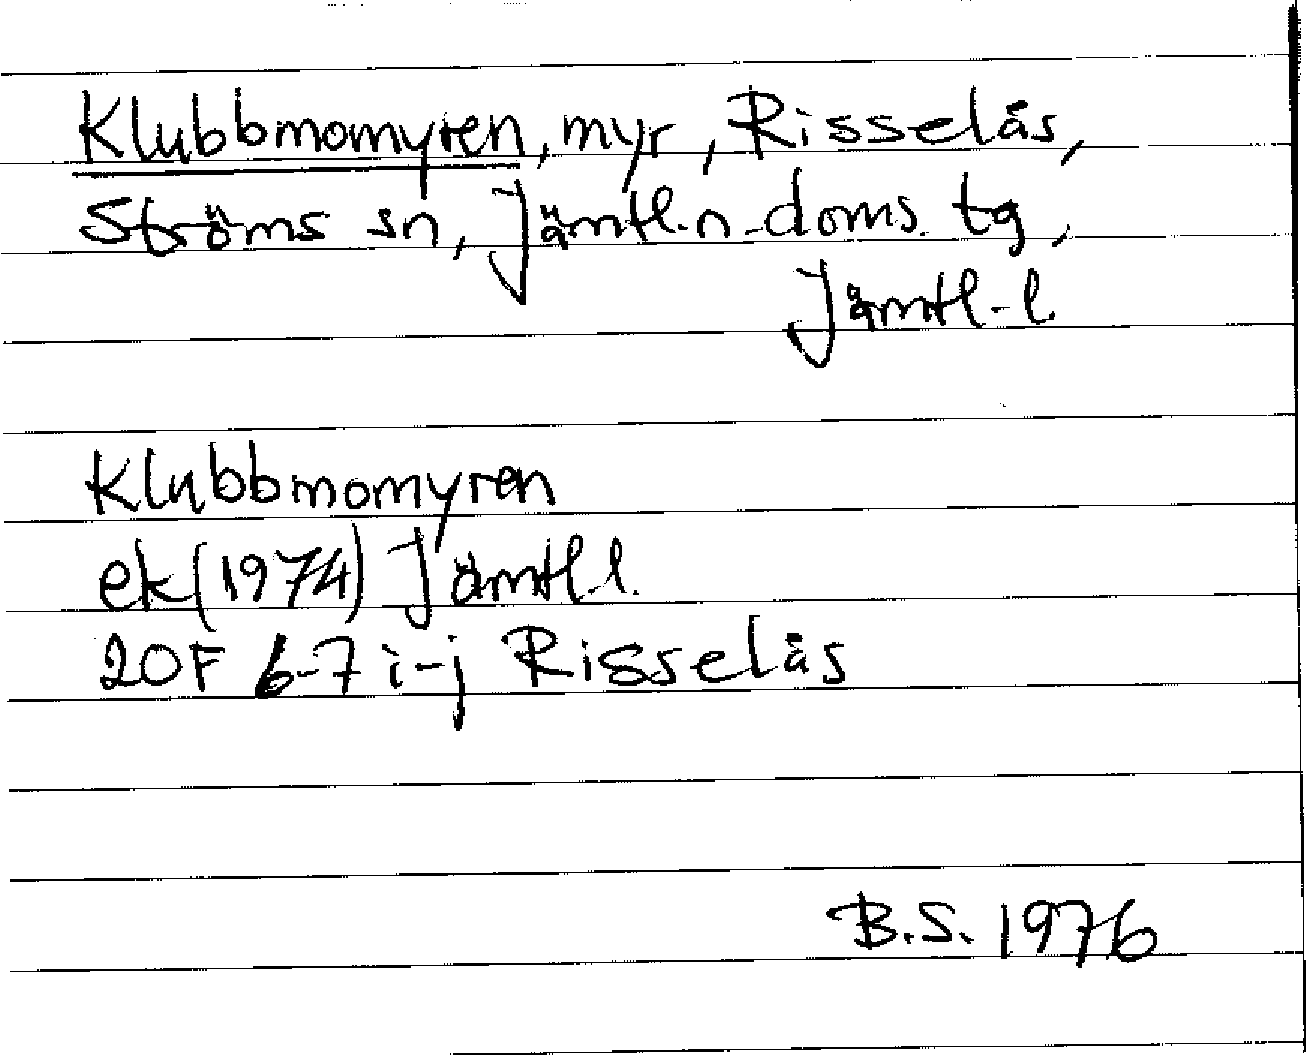 Klubbmomyren, myr, Risselås,
Ströms sn, Jämtl. n. doms. tg,
Jämtl-l.
Klubbmomyren
ek (1974) Jämtl.l.
20F 6-7 i-j Risselås
B.S. 1976